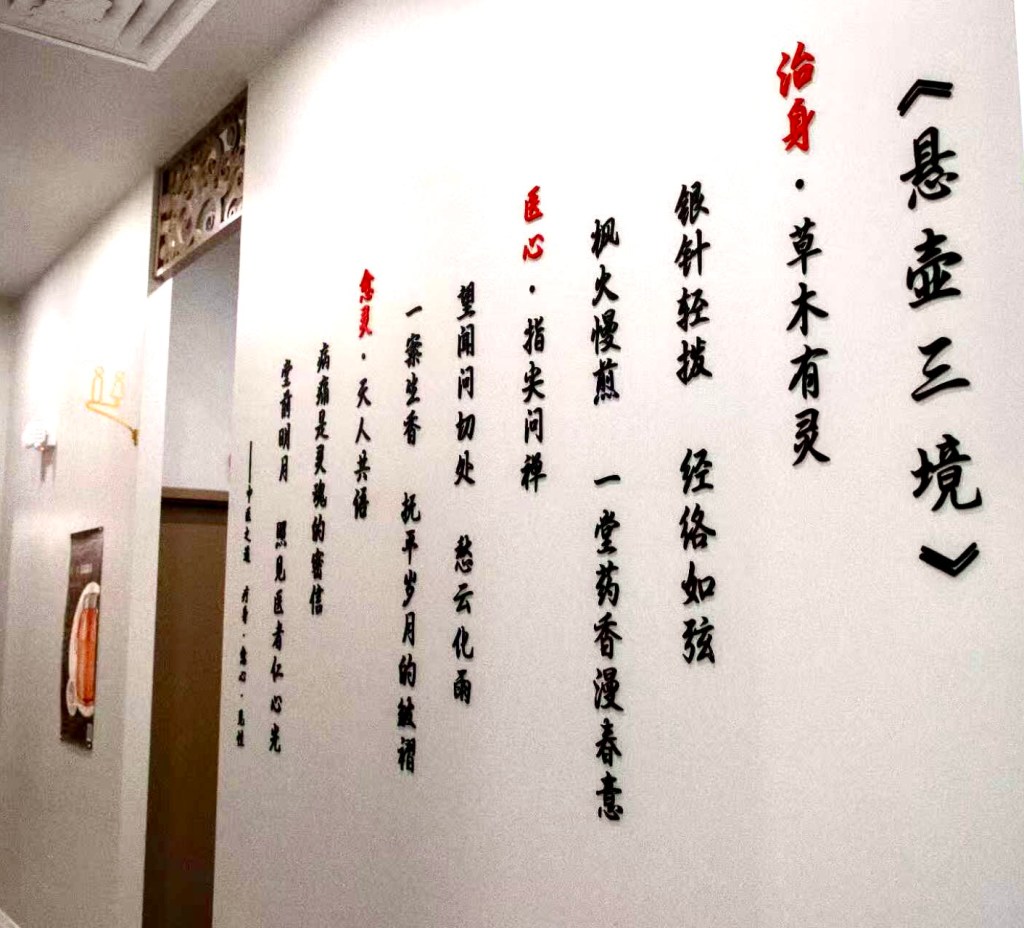 《悬壶三境》
治身·草木有灵
银针轻拨 经络如弦
炽火慢煎 一堂药香漫春意
医心·指尖问禅
望闻问切处 愁云化雨
一案生香 抚平岁月的皱褶
愈灵·天人共悟
病痛是灵魂的密信
堂前明月 照见医者仁心光
——中医之道 疗身·愈心·